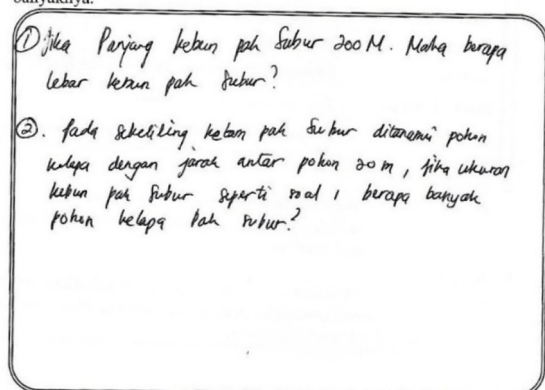 banyaknya.
① Jika Panjang kebun pak Subur 200 M. Maka berapa
lebar kebun pak Subur?
②. Pada sekeliling kebun pak Subur ditanami pohon
kelapa dengan jarak antar pohon 20 m, jika ukuran
kebun pak Subur seperti soal 1 berapa banyak
pohon kelapa Pak subur?